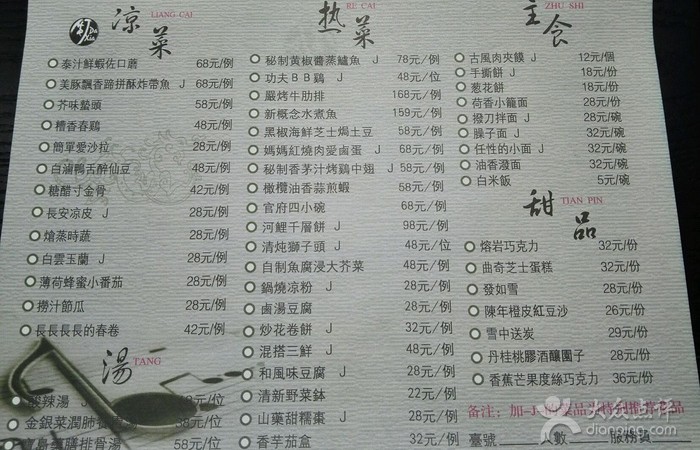 Da Xia
凉菜 LIANG CAI
泰汁鮮蝦佐口蘑 68元/例
美豚飄香蹄拼酥炸帶魚 J 68元/例
芥味蜇頭 58元/例
糟香春鷄 48元/例
簡單愛沙拉 28元/例
白滷鴨舌醉仙豆 48元/例
糖醋寸金骨 42元/例
長安凉皮 J 28元/例
熗蒸時蔬 28元/例
白雲玉蘭 J 28元/例
薄荷蜂蜜小番茄 28元/例
撈汁節瓜 28元/例
長長長長的春卷 42元/例
湯 TANG
酸辣湯 J
金銀菜潤肺
膳排骨湯 58元/位
热菜 RE CAI
秘制黄椒醬蒸鱸魚 J 78元/例
功夫BB鷄 J 48元/位
嚴烤牛肋排 168元/例
新概念水煮魚 159元/例
黑椒海鮮芝士焗土豆 58元/例
媽媽紅燒肉愛鹵蛋 J 68元/例
秘制香茅汁烤鷄中翅 J 58元/例
橄欖油香蒜煎蝦 58元/例
官府四小碗 68元/例
河鯉千層餅 J 98元/例
清炖獅子頭 J 48元/位
自制魚腐浸大芥菜 48元/例
鍋燒凉粉 J 28元/例
鹵湯豆腐 28元/例
炒花卷餅 J 32元/例
混搭三鮮 J 48元/例
和風味豆腐 J 28元/例
清新野菜鉢 22元/例
山藥甜糯棗 J 28元/例
香芋茄盒 32元/例
主食 ZHU SHI
古風肉夾饃 J 12元/個
手撕餅 J 18元/份
葱花餅 J 18元/份
荷香小籠面 28元/份
撥刀拌面 J 28元/碗
臊子面 J 32元/碗
任性的小面 J 32元/碗
油香潑面 32元/碗
白米飯 5元/碗
甜品 TIAN PIN
熔岩巧克力 32元/份
曲奇芝士蛋糕 32元/份
發如雪 28元/份
陳年橙皮紅豆沙 26元/份
雪中送炭 29元/份
丹桂桃膠酒釀圓子 28元/份
香蕉芒果度絲巧克力 36元/份
备注：加
大众点评
dianping.com
臺號 人數 服務費